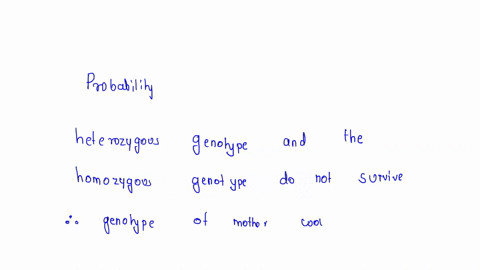 Probability
heterozygous genotype and the
homozygous genotype do not survive
∴ genotype of mother cool